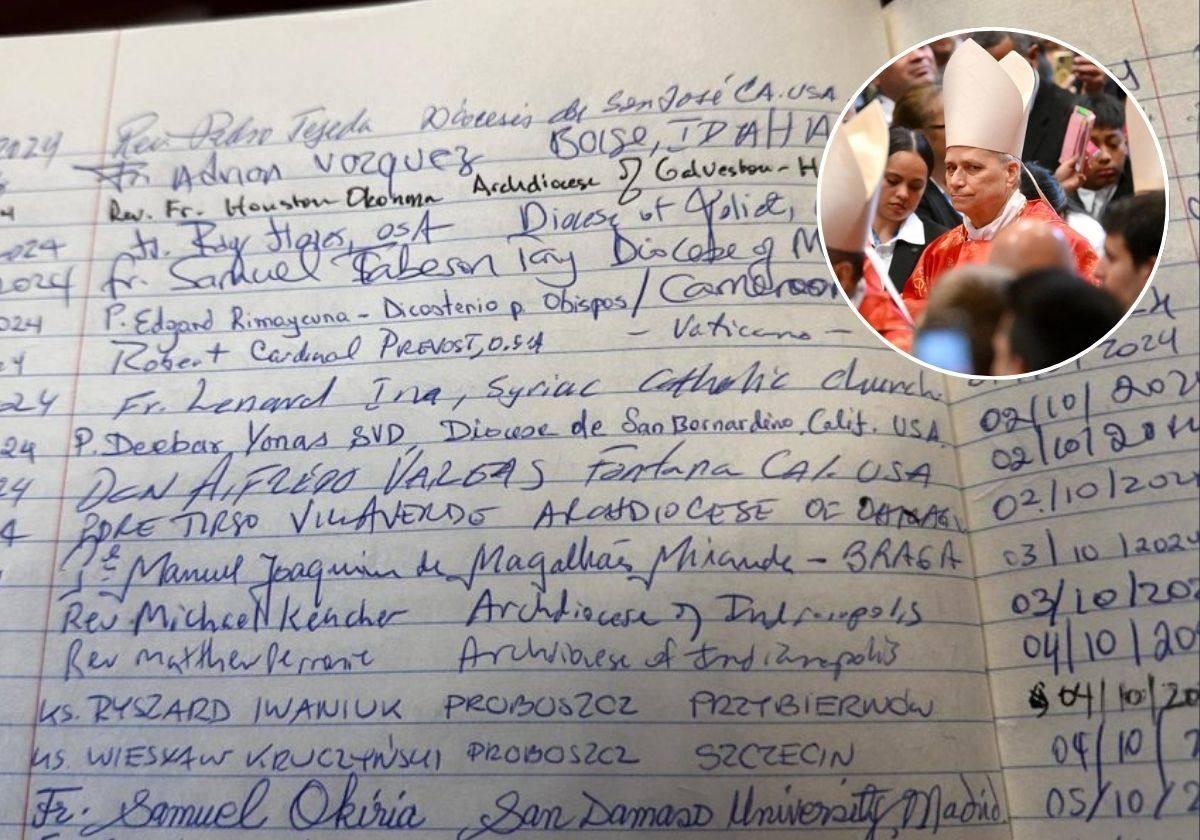 2024 Rev. Pedro Tejeda Diócesis de San José CA. USA
Fr. Adrian Vazquez BOISE, IDAHA
Rev. Fr. Houston Okonma Archdiocese of Galveston - H
2024 Fr. Ray Flores, OSA Diocese of Joliet,
2024 Fr. Samuel Diocese of M
024 P. Edgard Rimaycuna - Dicasterio p. Obispos / Cameroon
Robert Cardinal PREVOST, O.S.A - Vaticano - 2024
24 Fr. Lenard Ina, Syriac Catholic church. 02/10/202
24 P. Deebar Yonas SVD, Diocese de San Bernardino, Calif. USA 02/10/2024
24 DCN ALFREDO VARGAS Fontana CAL. USA 02/10/202
4 PDRE TIRSO VILLAVERDE ARCHDIOCESE OF 03/10/2024
Pe Manuel Joaquim de Magalhães Miranda - BRAGA 03/10/202
Rev. Michael Keucher Archdiocese of Indianapolis 04/10/20
Rev Matthew Perronie Archdiocese of Indianapolis 04/10/20
KS. RYSZARD IWANIUK PROBOSZCZ PRZYBIERNÓW 04/10/
KS. WIESŁAW KRUCZYŃSKI PROBOSZCZ SZCZECIN 05/10/2
Fr. Samuel Okiria San Damaso University, Madrid